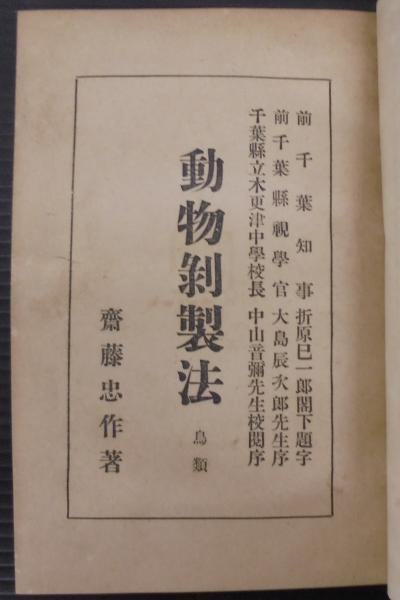 前千葉知事折原巳一郎閣下題字
前千葉縣視學官大島辰次郎先生序
千葉縣立木更津中學校長中山音彌先生校閱序
動物剝製法
鳥類
齋藤忠作著